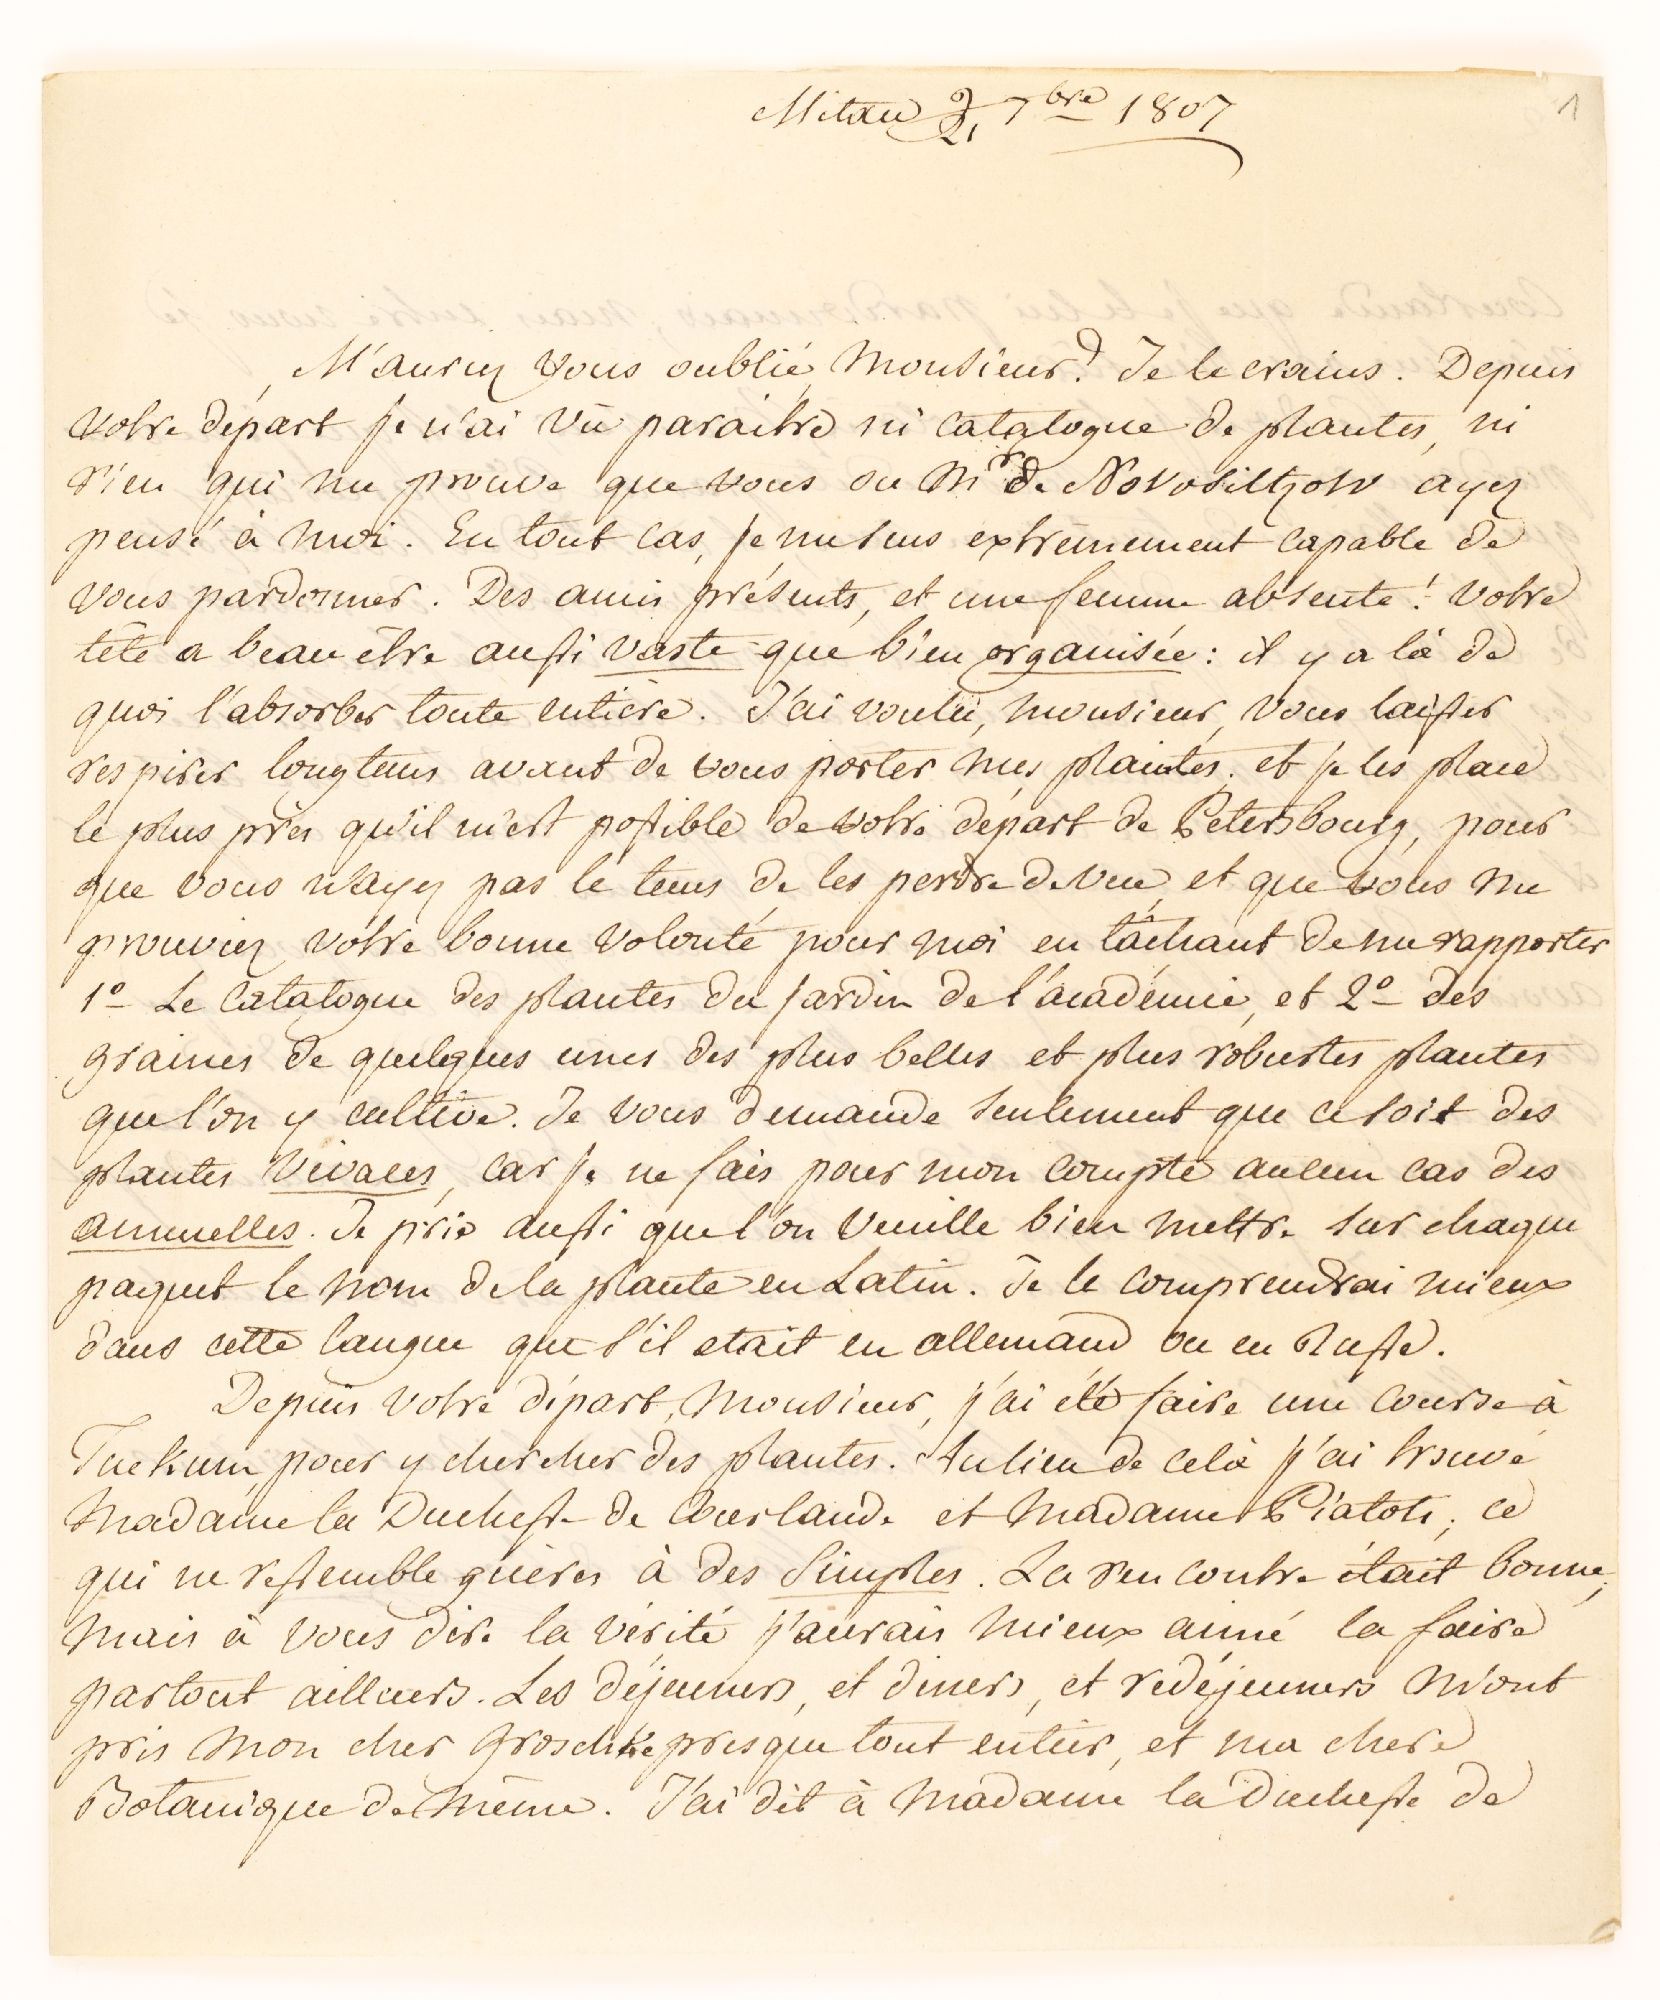 Mitau 9/21 7bre 1807
1
M'auriez vous oublié, Monsieur? Je le crains. Depuis
votre départ je n'ai vû paraitre ni catalogue de plantes, ni
rien qui me prouve que vous ou Mr de Novosiltzow ayez
pensé à moi. En tout cas, je me sens extrêmement capable de
vous pardonner. Des amis présents, et une femme absente! Votre
tête a beau être aussi vaste que bien organisée: il y a là de
quoi l'absorber toute entière. J'ai voulu, Monsieur, vous laisser
respirer longtems avant de vous porter mes plaintes, et je les place
le plus près qu'il m'est possible de votre départ de Petersbourg, pour
que vous n'ayez pas le tems de les perdre de vue, et que vous me
prouviez votre bonne volonté pour moi en tâchant de me rapporter
1o Le Catalogue des plantes du jardin de l'académie, et 2o des
graines de quelques unes des plus belles et plus robustes plantes
que l'on y cultive. Je vous demande seulement que ce soit des
plantes vivaces, car je ne fais pour mon compte aucun cas des
annuelles. Je prie aussi que l'on veuille bien mettre sur chaque
paquet le nom de la plante en Latin. Je le comprendrai mieux
dans cette langue que s'il etait en allemand ou en Russe.
Depuis votre départ, Monsieur, j'ai été faire une course à
Tuckum pour y chercher des plantes. Aulieu de celà j'ai trouvé
Madame la Duchesse de Courlande et Madame Piatoli; ce
qui ne ressemble guères à des Simples. La rencontre était bonne;
mais à vous dire la vérité j'aurais mieux aimé la faire
partout ailleurs. Les déjeuners, et diners, et redéjeuners m'ont
pris mon cher Groschke presque tout entier, et ma chere
Botanique de même. J'ai dit à Madame la Duchesse de